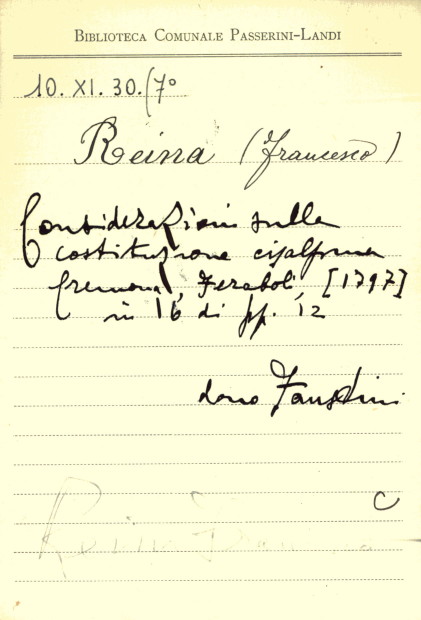 BIBLIOTECA COMUNALE PASSERINI-LANDI
10. XI. 30. (7°
Reina (Francesco)
Considerazioni sulla
costituzione cisalpina
Cremona, Feraboli, [1797]
in 16 di pp. 12
dono Faustini
C